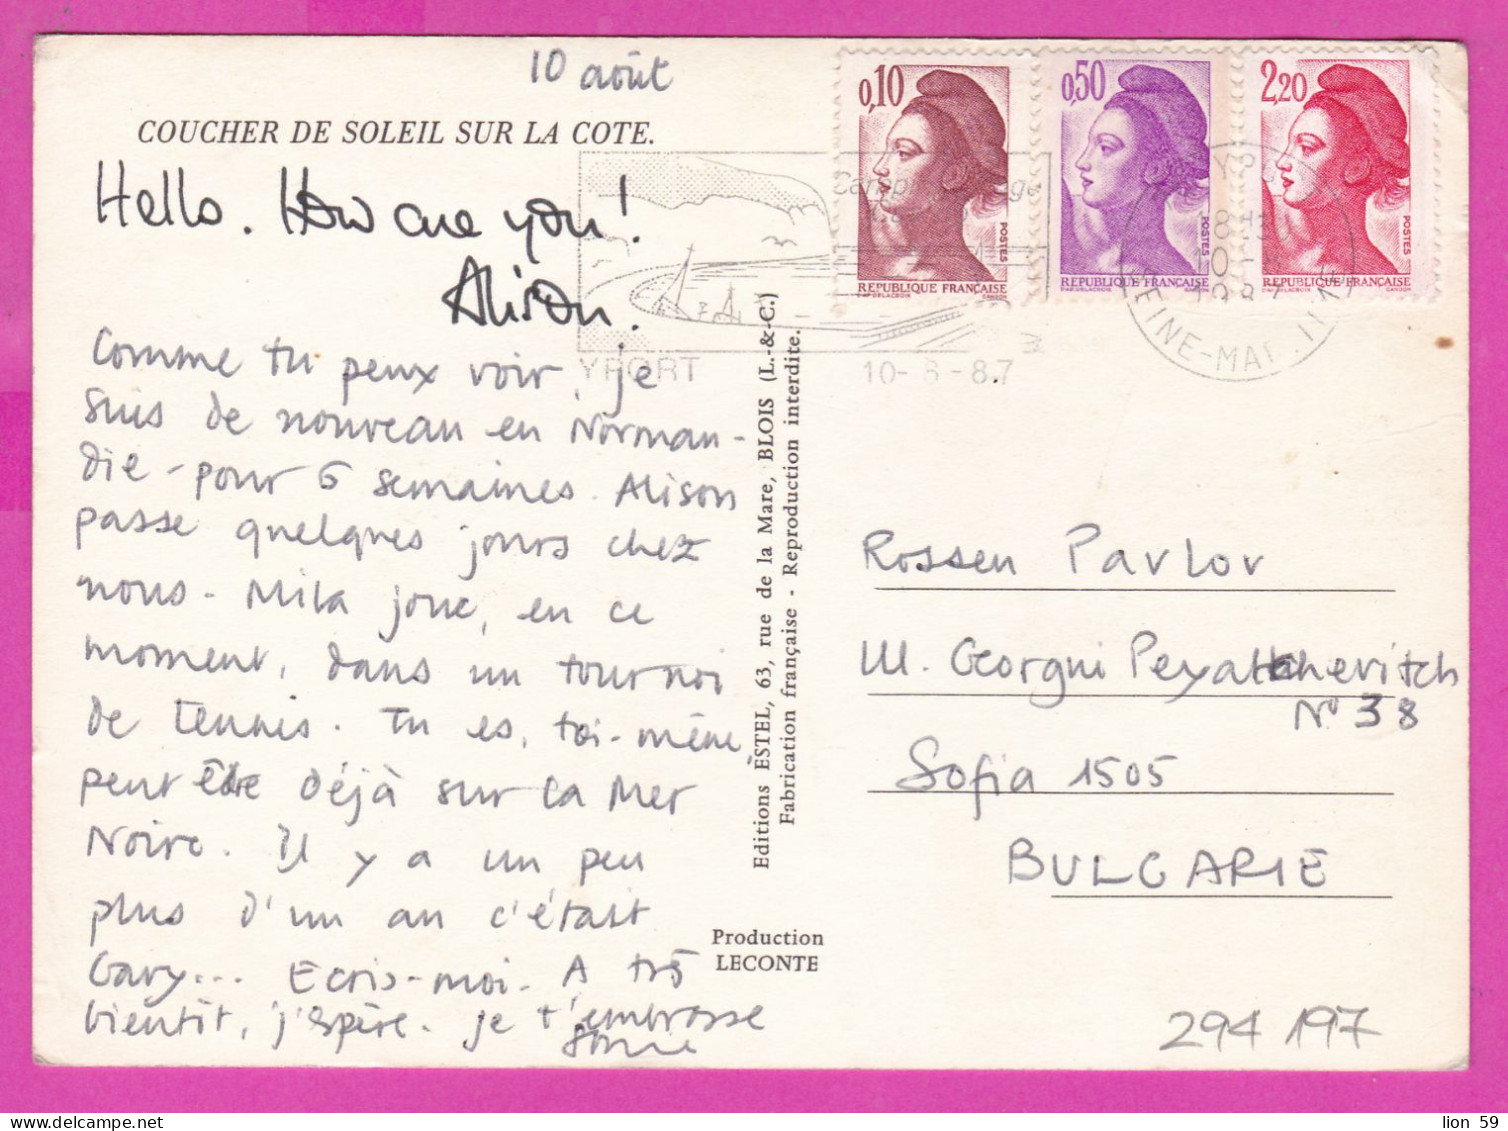 10 août
COUCHER DE SOLEIL SUR LA COTE.
Hello. How are you!
Alison.
Comme tu peux voir, je
suis de nouveau en Norman-
die - pour 6 semaines. Alison
passe quelques jours chez
nous. Mila joue, en ce
moment, dans un tournoi
de tennis. Tu es, toi-même
peut être déjà sur la Mer
Noire. Il y a un peu
plus d'un an c'était
Gavy... Ecris-moi. A très
bientôt, j'espère. Je t'embrasse
Editions ESTEL, 63, rue de la Mare, BLOIS (L.-&-C.)
Fabrication française - Reproduction interdite.
Production
LECONTE
0,10
POSTES
REPUBLIQUE FRANÇAISE
D'AP. DELACROIX GANDON
0,50
POSTES
REPUBLIQUE FRANÇAISE
D'AP. DELACROIX GANDON
2,20
POSTES
REPUBLIQUE FRANÇAISE
D'AP. DELACROIX GANDON
YPORT
10-8-87
YPORT
18H
10-8
1987
SEINE-MAR
Rossen Pavlov
Ul. Georgui
N° 38
Sofia 1505
BULGARIE
294 197
lion 59